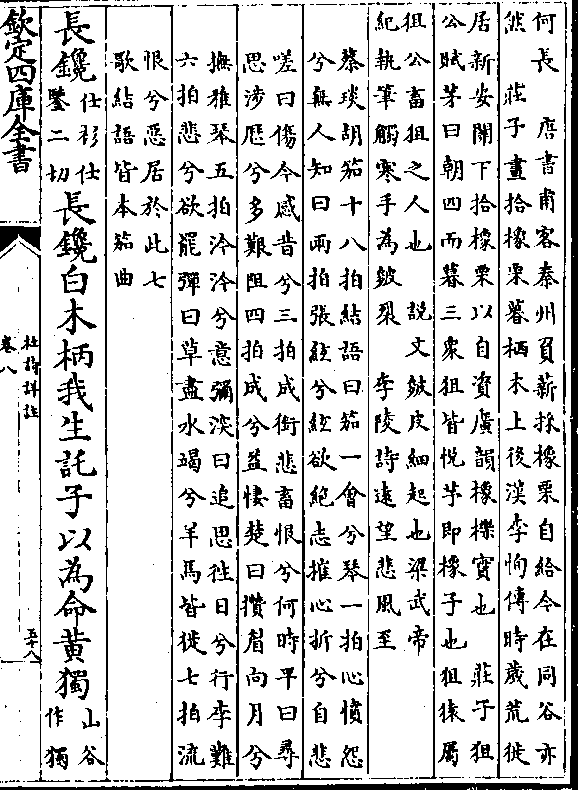 何長　唐書甫客秦州負薪採橡栗自給今在同谷亦
然　莊子晝拾橡栗暮栖木上後漢李恂傳時歲荒徙
居新安關下拾橡栗以自資廣韻橡櫟實也　莊子狙
公賦茅曰朝四而暮三衆狙皆悅芧即橡子也狙猿屬
狙公畜狙之人也　說文皴皮細起也梁武帝
紀執筆觸寒手為皴裂　李陵詩遠望悲風至
蔡琰胡笳十八拍結語曰笳一會兮琴一拍心憤怨
兮無人知曰兩拍張絃兮絃欲絶志摧心折兮自悲
嗟曰傷今感昔兮三拍成銜悲畜恨兮何時平曰尋
思涉歷兮多艱阻四拍成兮益悽楚曰攢眉向月兮
撫雅琴五拍泠泠兮意彌深曰追思往日兮行李難
六拍悲兮欲罷彈曰草盡水竭兮羊馬皆徙七拍流
恨兮惡居於此七
歌結語皆本笳曲
長鑱仕衫仕
鑒二切長鑱白木柄我生託子以為命黃獨山谷
作獨
欽定四庫全書
杜詩詳註
卷八
五十八